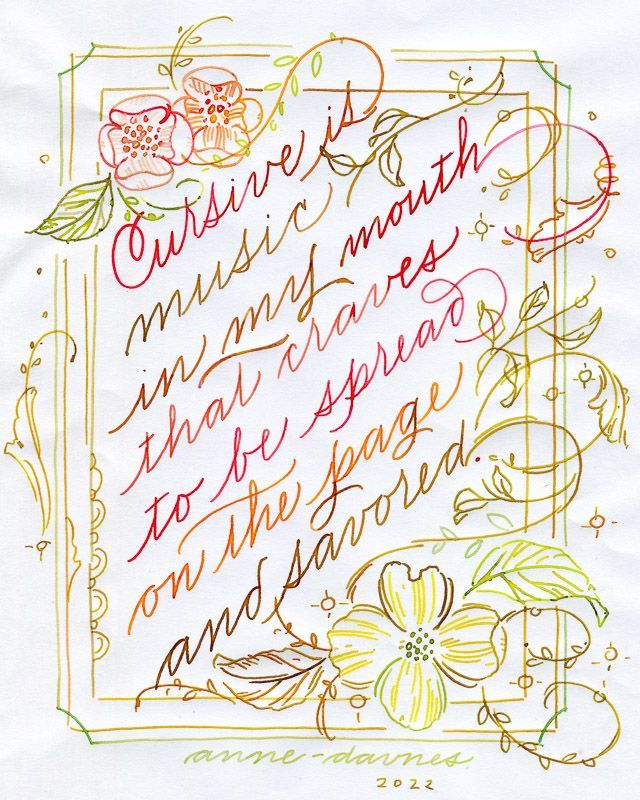 Cursive is
music
in my mouth
that craves
to be spread
on the page
and savored.
anne-davnes
2022